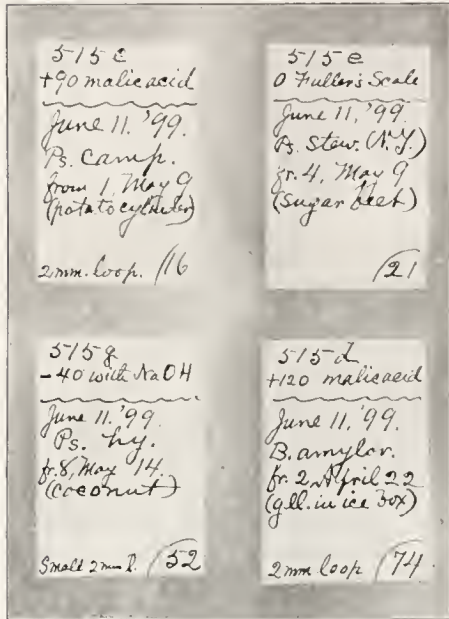 515 c
+90 malic acid
June 11. '99.
Ps. Camp.
from 1, May 9
(potato cylinder)
2 mm. loop. (16
515 e
0 Fuller's Scale
June 11, '99
Ps. Stew. (N.Y.)
fr. 4, May 9
(Sugar beet)
(21
515 g
-40 with NaOH
June 11. '99.
Ps. hy.
fr. 8, May 14.
(coconut)
Small 2 mm l. (52
515 d
+120 malic acid
June 11. '99.
B. amylov.
fr. 2, April 22
(gell. in ice box)
2 mm loop (74